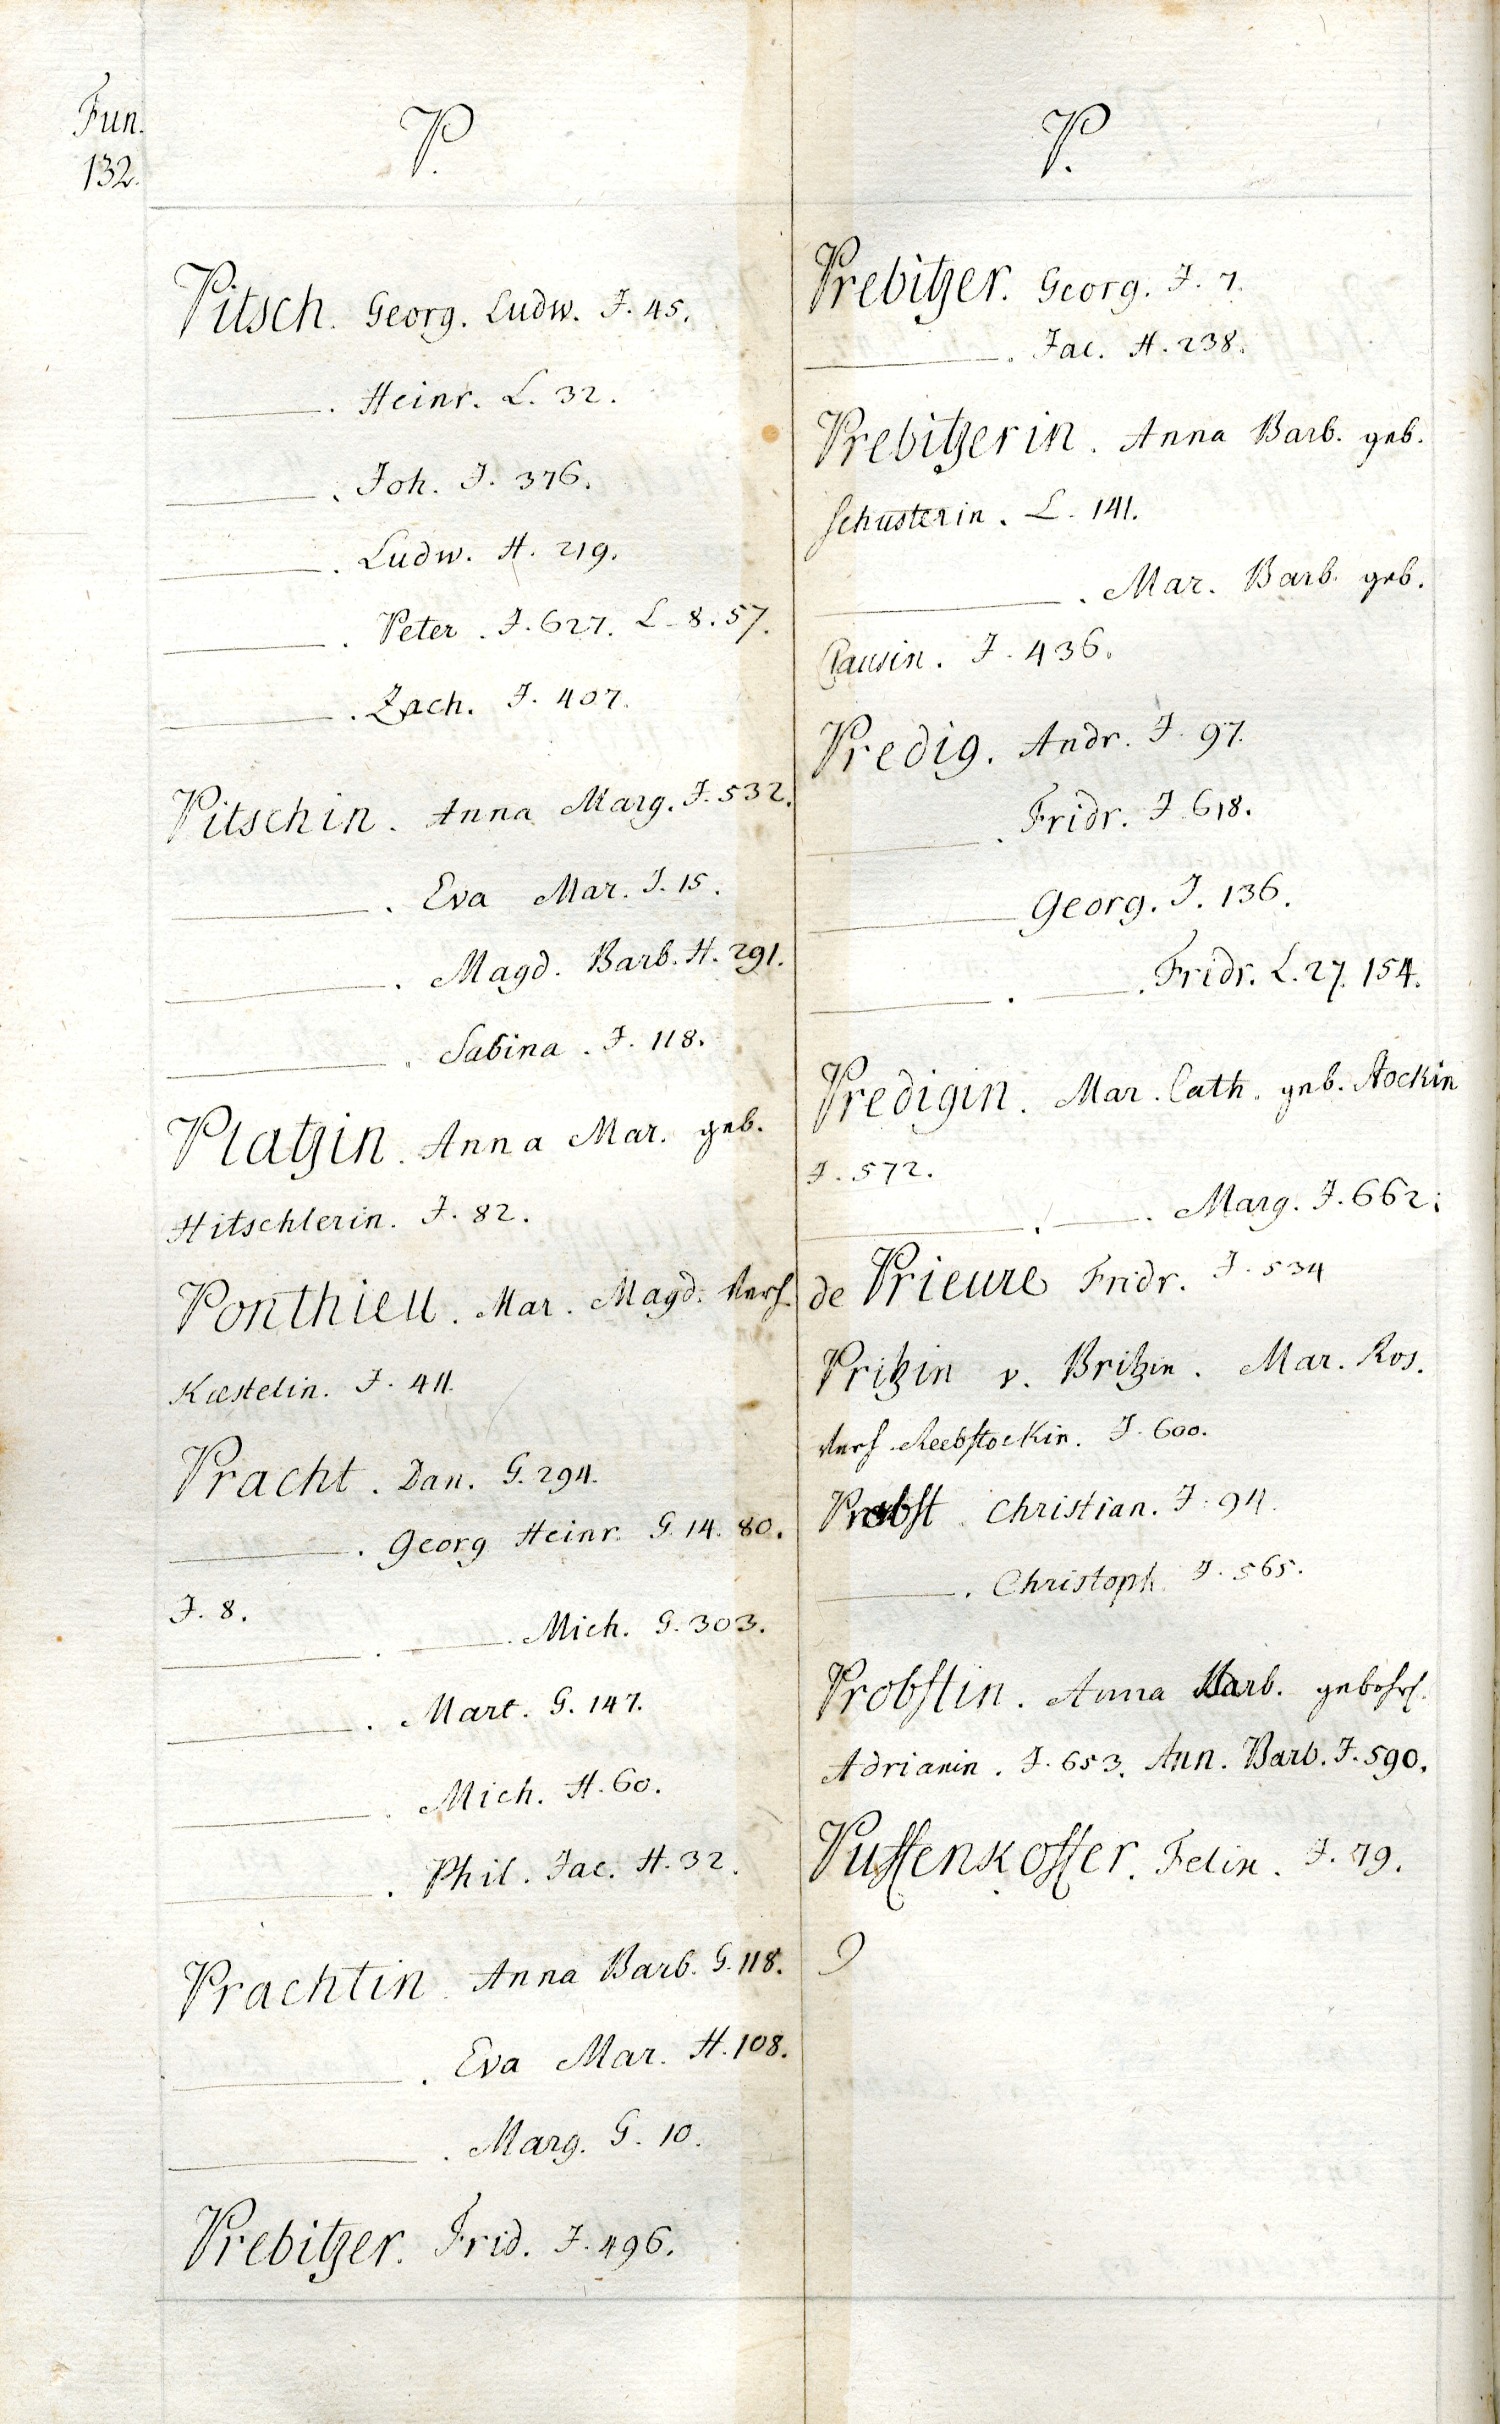 Fun.
132.
P.
Pitsch. Georg. Ludw. J. 45.
______. Heinr. L. 32.
______. Joh. J. 376.
______. Ludw. H. 219.
______. Peter. J. 627. L. 8. 57.
______. Zach. J. 407.
Pitschin. Anna Marg. J. 532.
______. Eva Mar. J. 15.
______. Magd. Barb. H. 291.
______. Sabina. J. 118.
Platzin. Anna Mar. geb.
Hitschlerin. J. 82.
Ponthieu. Mar. Magd.
Kæstelin. J. 411.
Pracht. Dan. G. 294.
______. Georg Heinr. G. 14. 80.
J. 8.
______. ______. Mich. G. 303.
______. Mart. G. 147.
______. Mich. H. 60.
______. Phil. Jac. H. 32.
Prachtin. Anna Barb. G. 118.
______. Eva Mar. H. 108.
______. Marg. G. 10.
Prebitzer. Frid. J. 496.
P.
Prebitzer. Georg. J. 7.
______. Jac. H. 238.
Prebitzerin. Anna Barb. geb.
Schusterin. L. 141.
______. Mar. Barb. geb.
Clausin. J. 436.
Predig. Andr. J. 97.
______. Fridr. J. 618.
______ Georg. J. 136.
______. ______. Fridr. L. 27. 154.
Predigin. Mar. Cath. geb.
J. 572.
______. ______. Marg. J. 662.
de Prieure Fridr. J. 534
Pritzin v. Britzin. Mar. Ros.
Reebstockin. J. 600.
Probst. Christian. J. 94.
______. Christoph. J. 565.
Probstin. Anna Barb. gebohr.
Adrianin. J. 653. Ann. Barb. J. 590.
Pussenkosser. Felix. J. 79.